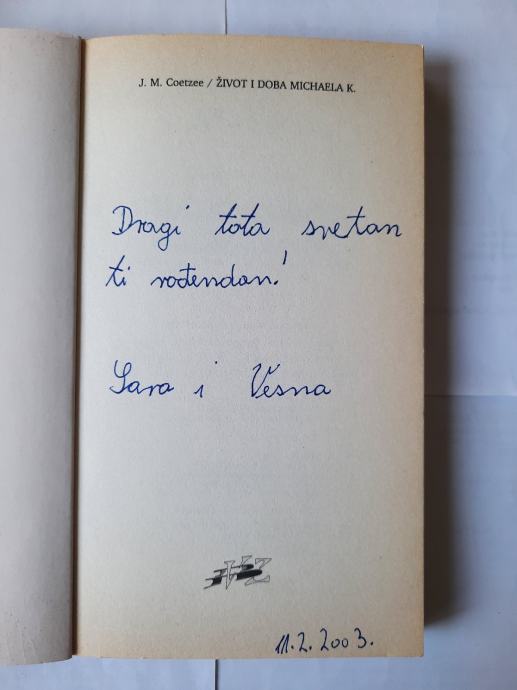 J. M. Coetzee / ŽIVOT I DOBA MICHAELA K.
Dragi tata sretan
ti rođendan!
Sara i Vesna
11.2.2003.